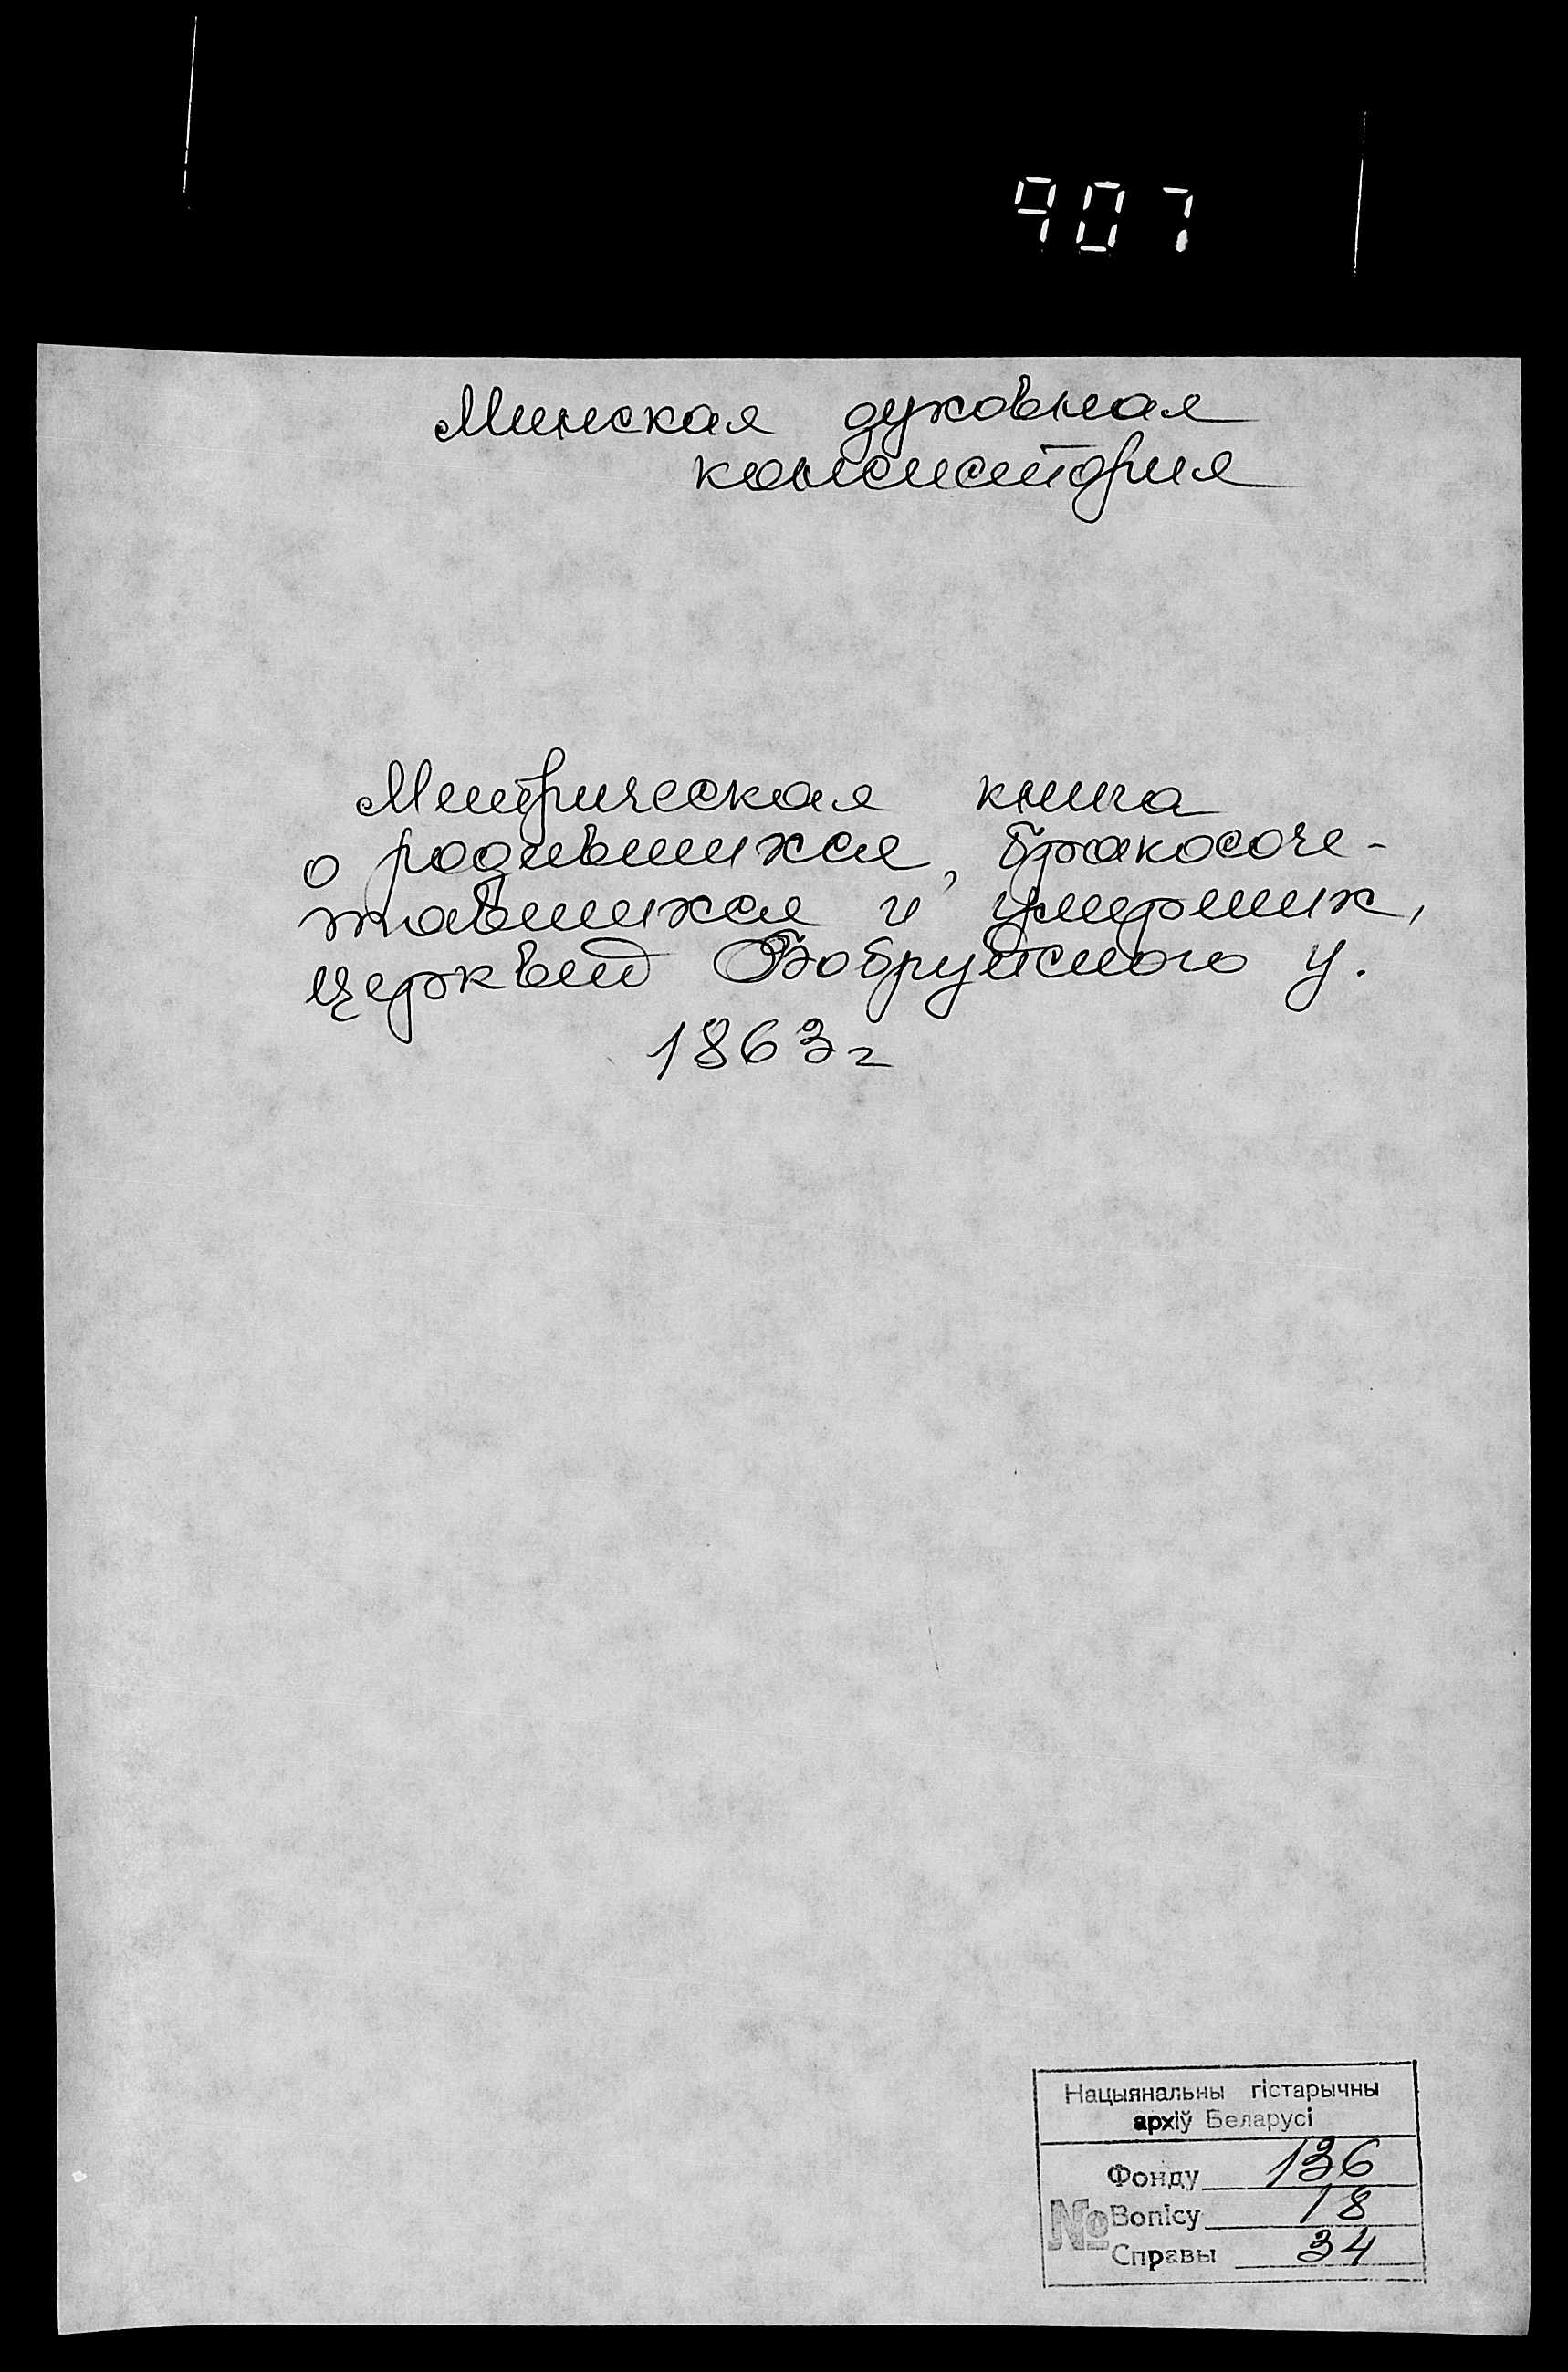 907
Минская духовная
консистория
Метрическая книга
о родившихся, бракосоче-
тавшихся и умерших,
церквей Бобруйского у.
1863 г
Нацыянальны гістарычны
архіў Беларусі
Фонду 136
№ Вопісу 18
Справы 34